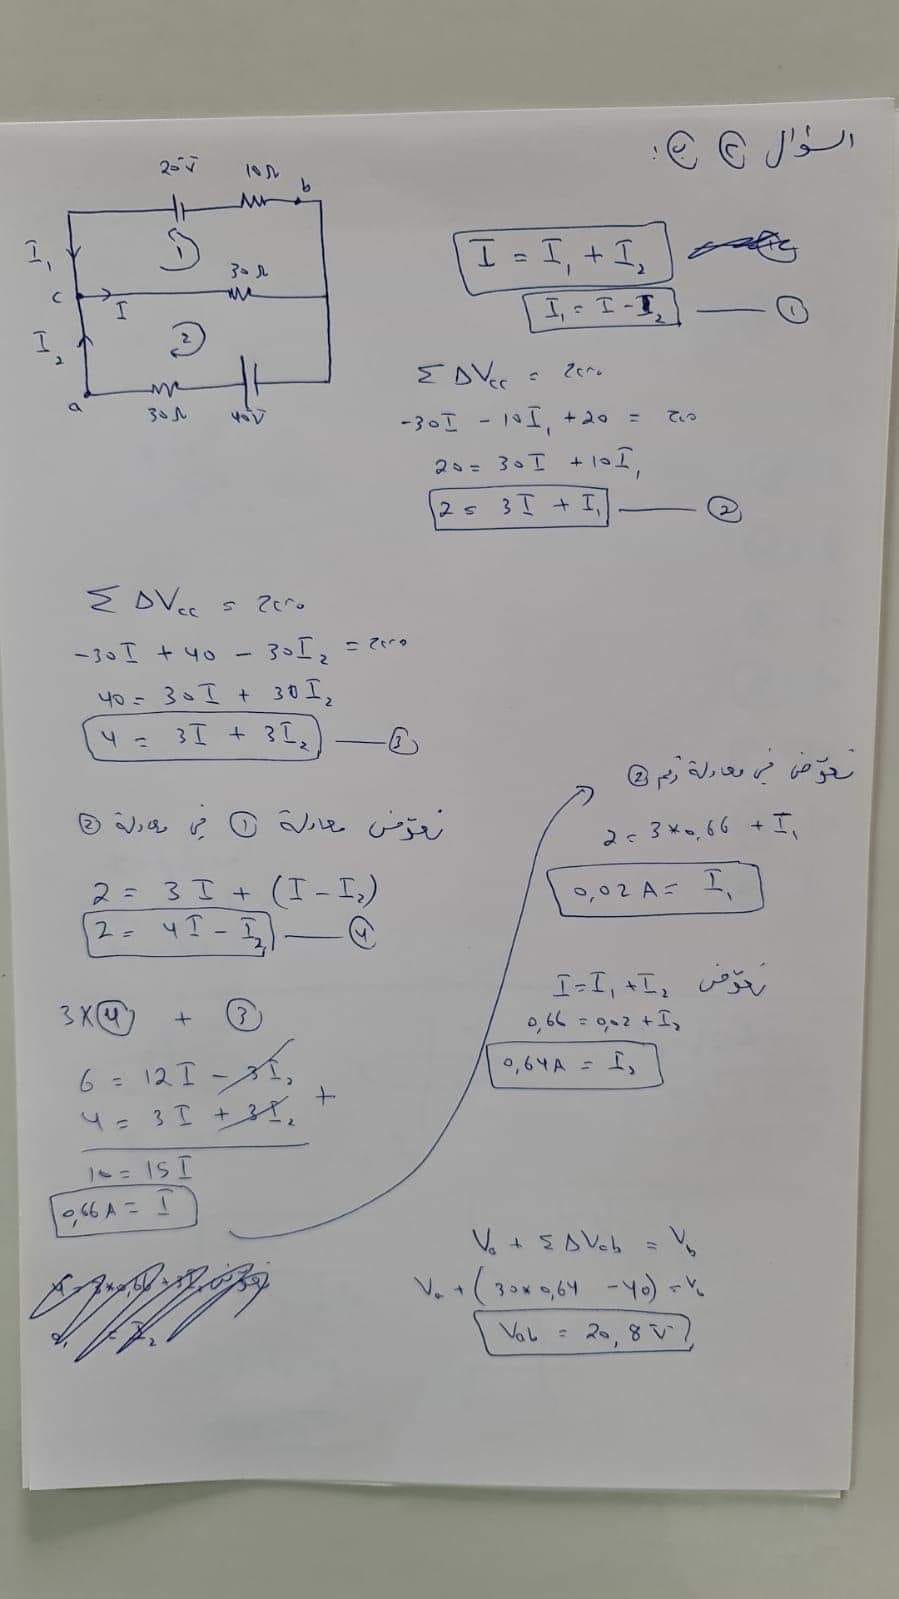 السؤال ٢ ب :
20 V 10 Ω b
I₁ 1 30 Ω
c I
I₂ 2
a 30 Ω 40 V
I = I₁ + I₂
I₁ = I - I₂ —— ①
Σ ΔVcc = Zero
-30I - 10I₁ + 20 = zero
20 = 30I + 10I₁
2 = 3I + I₁ —— ②
Σ ΔVcc = Zero
-30I + 40 - 30I₂ = zero
40 = 30I + 30I₂
4 = 3I + 3I₂ —— ③
نعوّض معادلة ① في معادلة ②
2 = 3I + (I - I₂)
2 = 4I - I₂ —— ④
3 × ④ + ③
6 = 12I - 3I₂
4 = 3I + 3I₂ +
10 = 15I
0,66 A = I
نعوّض في معادلة رقم ②
2 = 3 × 0,66 + I₁
0,02 A = I₁
نعوّض I = I₁ + I₂
0,66 = 0,02 + I₂
0,64 A = I₂
Va + Σ ΔVab = Vb
Va + (30 × 0,64 - 40) = Vb
Vab = 20,8 V